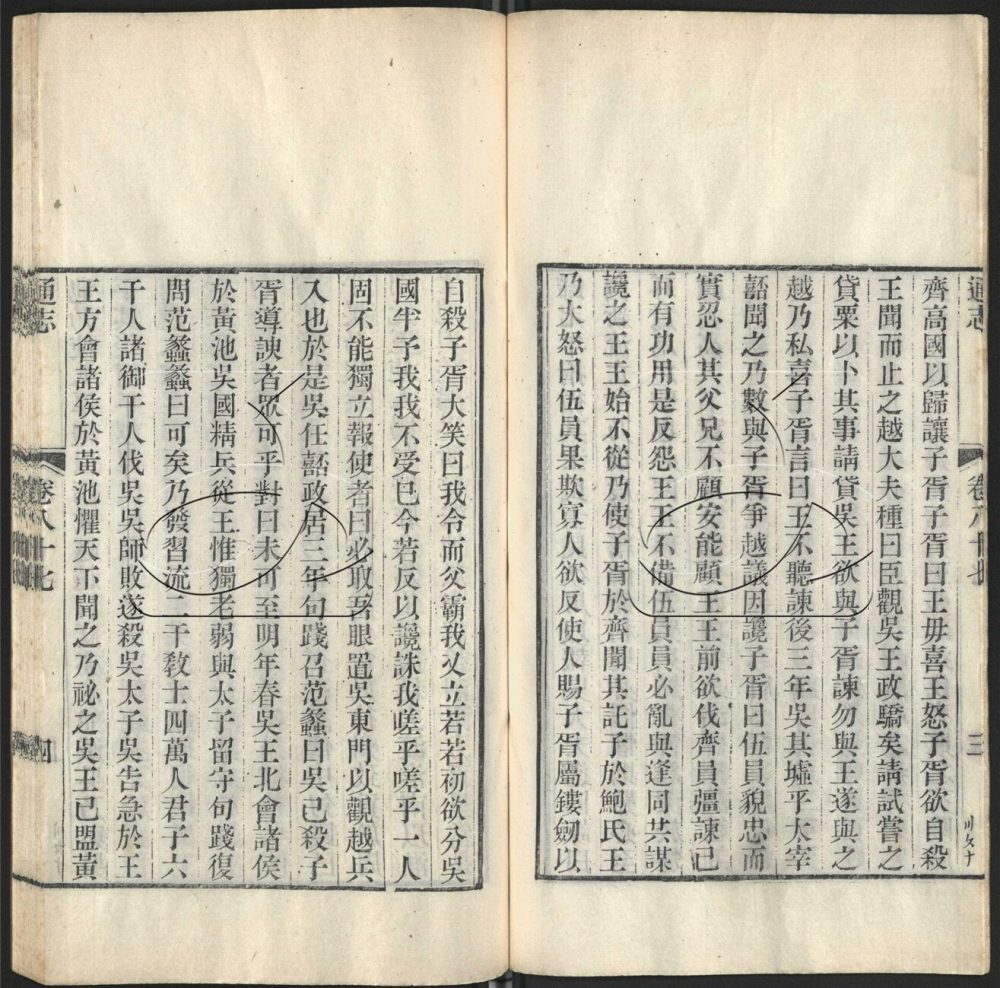 齊高國以歸讓子胥子胥曰王毋喜王怒子胥欲自殺
王聞而止之越大夫種曰臣觀吳王政驕矣請試嘗之
貸粟以卜其事請貸吳王欲與子胥諫勿與王遂與之
越乃私喜子胥言曰王不聽諫後三年吳其墟乎太宰
嚭聞之乃數與子胥爭越議因讒子胥曰伍員貌忠而
實忍人其父兄不顧安能顧王王前欲伐齊員彊諫已
而有功用是反怨王王不備伍員員必亂與逢同共謀
讒之王王始不從乃使子胥於齊聞其託子於鮑氏王
乃大怒曰伍員果欺寡人欲反使人賜子胥屬鏤劍以
通志
卷八十七
三
自殺子胥大笑曰我令而父霸我又立若若初欲分吳
國半予我我不受已今若反以讒誅我嗟乎嗟乎一人
固不能獨立報使者曰必取吾眼置吳東門以觀越兵
入也於是吳任嚭政居三年句踐召范蠡曰吳已殺子
胥導諛者眾可乎對曰未可至明年春吳王北會諸侯
於黃池吳國精兵從王惟獨老弱與太子留守句踐復
問范蠡蠡曰可矣乃發習流二千敎士四萬人君子六
千人諸御千人伐吳吳師敗遂殺吳太子吳告急於王
王方會諸侯於黃池懼天下聞之乃祕之吳王已盟黃
通志
卷八十七
四